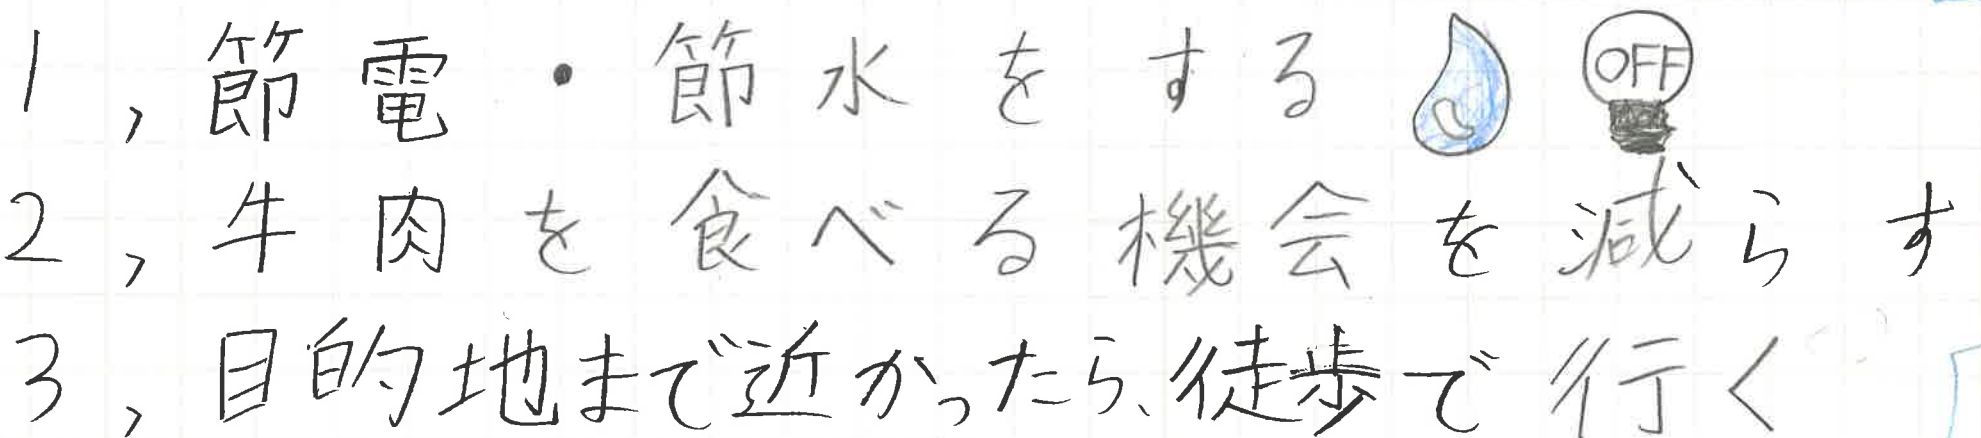 1,節電・節水をする OFF
2,牛肉を食べる機会を減らす
3,目的地まで近かったら、徒歩で行く